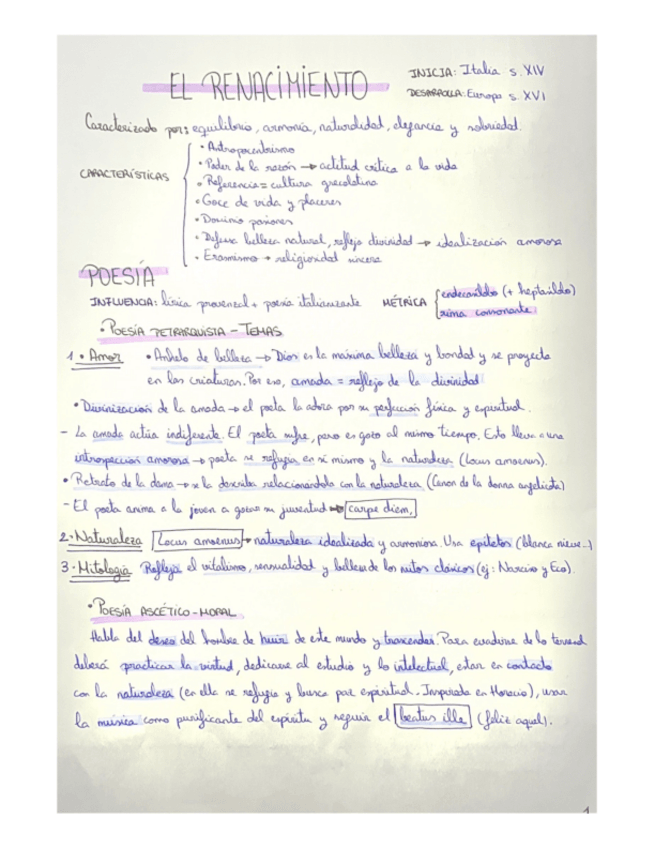 EL RENACIMIENTO
INICIA: Italia s. XIV
DESARROLLA: Europa s. XVI
Caracterizado por: equilibrio, armonía, naturalidad, elegancia y sobriedad.
CARACTERÍSTICAS
• Antropocentrismo
• Poder de la razón → actitud crítica a la vida
• Referencia = cultura grecolatina
• Goce de vida y placeres
• Dominio pasiones
• Defensa belleza natural, reflejo divinidad → idealización amorosa
• Erasmismo → religiosidad sincera
POESÍA
INFLUENCIA: lírica provenzal + poesía italianizante MÉTRICA
endecasílabo (+ heptasílabo)
rima consonante
• POESÍA PETRARQUISTA - TEMAS
1. Amor • Anhelo de belleza → Dios es la máxima belleza y bondad y se proyecta
en las criaturas. Por eso, amada = reflejo de la divinidad
• Divinización de la amada → el poeta la adora por su perfección física y espiritual.
- La amada actúa indiferente. El poeta sufre, pero es gozo al mismo tiempo. Esto lleva a una
introspección amorosa → poeta se refugia en sí mismo y la naturaleza (Locus amoenus).
• Retrato de la dama → se la describe relacionándola con la naturaleza (Canon de la donna angelicata)
- El poeta anima a la joven a gozar su juventud → carpe diem.
2. Naturaleza Locus amoenus → naturaleza idealizada y armoniosa. Usa epítetos (blanca nieve...)
3. Mitología Refleja el vitalismo, sensualidad y belleza de los mitos clásicos (ej: Narciso y Eco).
• POESÍA ASCÉTICO-MORAL
Habla del deseo del hombre de huir de este mundo y trascender. Para evadirse de lo terrenal
deberá practicar la virtud, dedicarse al estudio y lo intelectual, estar en contacto
con la naturaleza (en ella se refugia y busca paz espiritual. Inspirada en Horacio), usar
la música como purificante del espíritu y seguir el beatus ille (feliz aquel).
1